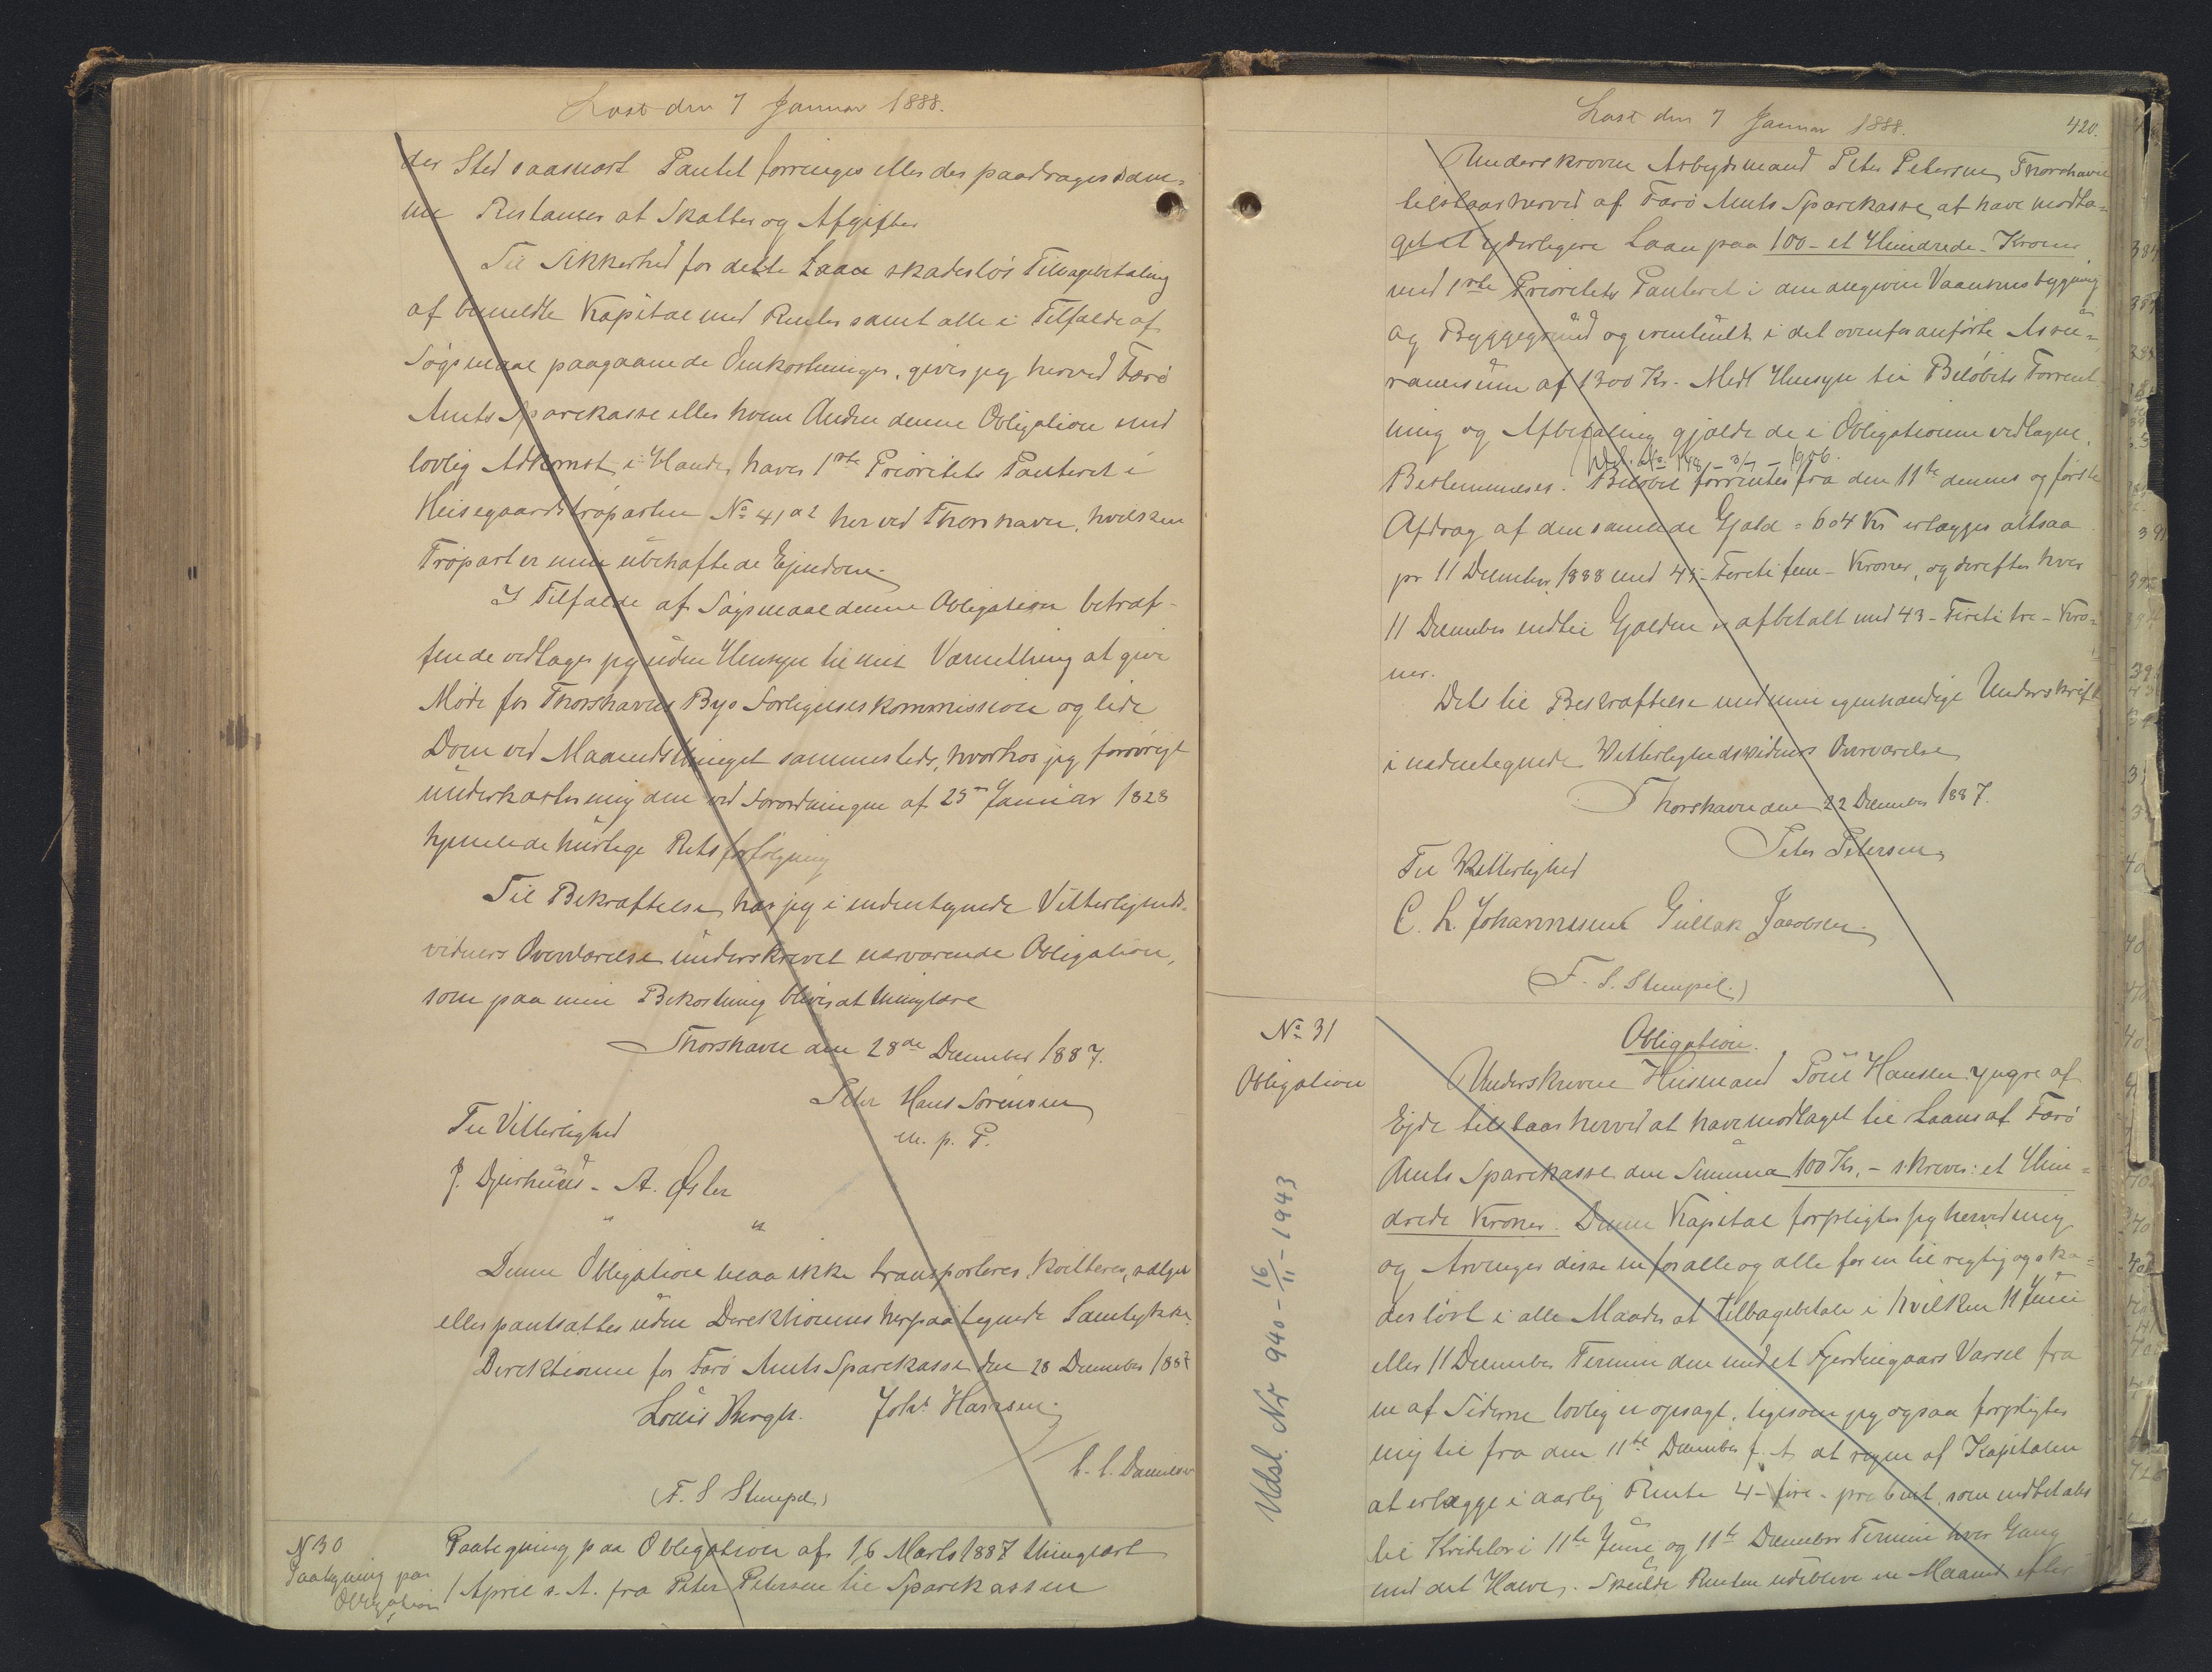 Læst den 7 Januar 1888.
der Sted saasnart Pantet forringes eller der paadrages sam-
me Restancer at Skatter og Afgifter
Til Sikkerhed for dette Laan skadesløs Tilbagebetaling
af bemeldte Kapital med Renter samt alle i Tilfælde af
Søgsmaal paagaaende Omkostninger, giver jeg herved Færø
Amts Sparekasse eller hvem Anden denne Obligation med
lovlig Adkomst i Hænde haver 1ste Prioritets Panteret i
Heisegaardstrøparten No 41 a2 her ved Thorshavn, hvilken
Trøpart er min ubehæftede Ejendom.
I Tilfælde af Søgsmaal denne Obligation betræf-
fende vedtager jeg uden Hensyn til mit Værnething at give
Møde for Thorshavns Byes Forligelseskommission og lide
Dom ved Maanedsthinget sammesteds, hvorhos jeg forøvrigt
underkaster mig den ved Forordningen af 25de Januar 1828
hjemlede hurtige Retsforfølgning
Til Bekræftelse har jeg i undertegnede Vitterligheds-
vidners Overværelse underskrevet nærværende Obligation,
som paa min Bekostning bliver at thinglæse
Thorshavn den 28de December 1887.
Peter Hans Sørensen
m. p. P.
Til Vitterlighed
J. Djurhuus - A. Øster
" "
Denne Obligation maa ikke transporteres, kvitteres, sælges
eller pantsættes uden Direktionens herpaategnede Samtykke.
Direktionen for Færø Amts Sparekasse den 28 December 1887
Louis Bergh. Johs Hansen.
C. C. Danielsen
(F. S Stempel)
N 30
Paategning paa
Obligation
Paategning paa Obligation af 16 Marts 1887 thinglæst
1 April s. A. fra Peter Petersen til Sparekassen
Læst den 7 Januar 1888.
420.
Underskreven Arbejdsmand Peter Petersen, Thorshavn
tilstaar herved af Færø Amts Sparekasse, at have modta-
get et yderligere Laan paa 100 - et Hundrede - Kroner
med 1ste Prioritets Panteret i den angivne Vaaningsbygning
og Byggegrund og eventuelt i det ovenfor anførte Assu-
rancesum af 1300 Kr. Med Hensyn til Beløbets Forrent-
ning og Afbetaling gjælde de i Obligationen vedtagne
Udsl. No 148 - 3/7 - 1906.
Bestemmelser. Beløbet forrentes fra den 11te dennes og første
Afdrag af den samlede Gjæld = 604 Kr erlægges altsaa
pr 11 December 1888 med 45 - Fireti fem - Kroner, og derefter hver
11 December indtil Gjælden er afbetalt med 43 - Fireti tre - Kro-
ner.
Dets til Bekræftelse med min egenhændige Underskrift
i undertegnede Vitterlighedsvidners Overværelse
Thorshavn den 22 December 1887.
Peter Petersen
Til Vitterlighed
C. L. Johannesen Gullak Jacobsen.
(F. S. Stempel.)
No 31
Obligation
Obligation.
Underskrevne Husmand Poul Hansen yngre af
Ejde tilstaar herved at have modtaget til Laans af Færø
Amts Sparekasse den Summa 100 Kr. - skriver: et Hun-
drede Kroner. Denne Kapital forpligter jeg herved mig
og Arvinger disse en for alle og alle for en til rigtig og ska-
desløst i alle Maader at tilbagebetale i hvilken 11 Juni
eller 11 December Termin den med et Fjerdingaars Varsel fra
en af Siderne lovlig er opsagt, ligesom jeg ogsaa forpligter
mig til fra den 11te December f. A. at regne af Kapitalen
at erlægge i aarlig Rente 4 - fire - procent, som indbetales
til Kreditor i 11te Juni og 11te December Termin hver Gang
med det Halve. Skulde Renten udeblive en Maaned efter
Udsl. Nr 940 - 16/11 - 1943